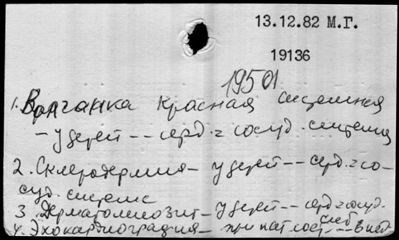 13.12.82 М.Г.
19136
19501
1. Волчанка красная системная
- у детей -- серд.-сосуд. система
2. Склеродермия - у детей -- серд.-со-
суд. система
3. Дерматомиозит - у детей -- серд-сосуд.
сист
4. Эхокардиография - при пат. сост. --